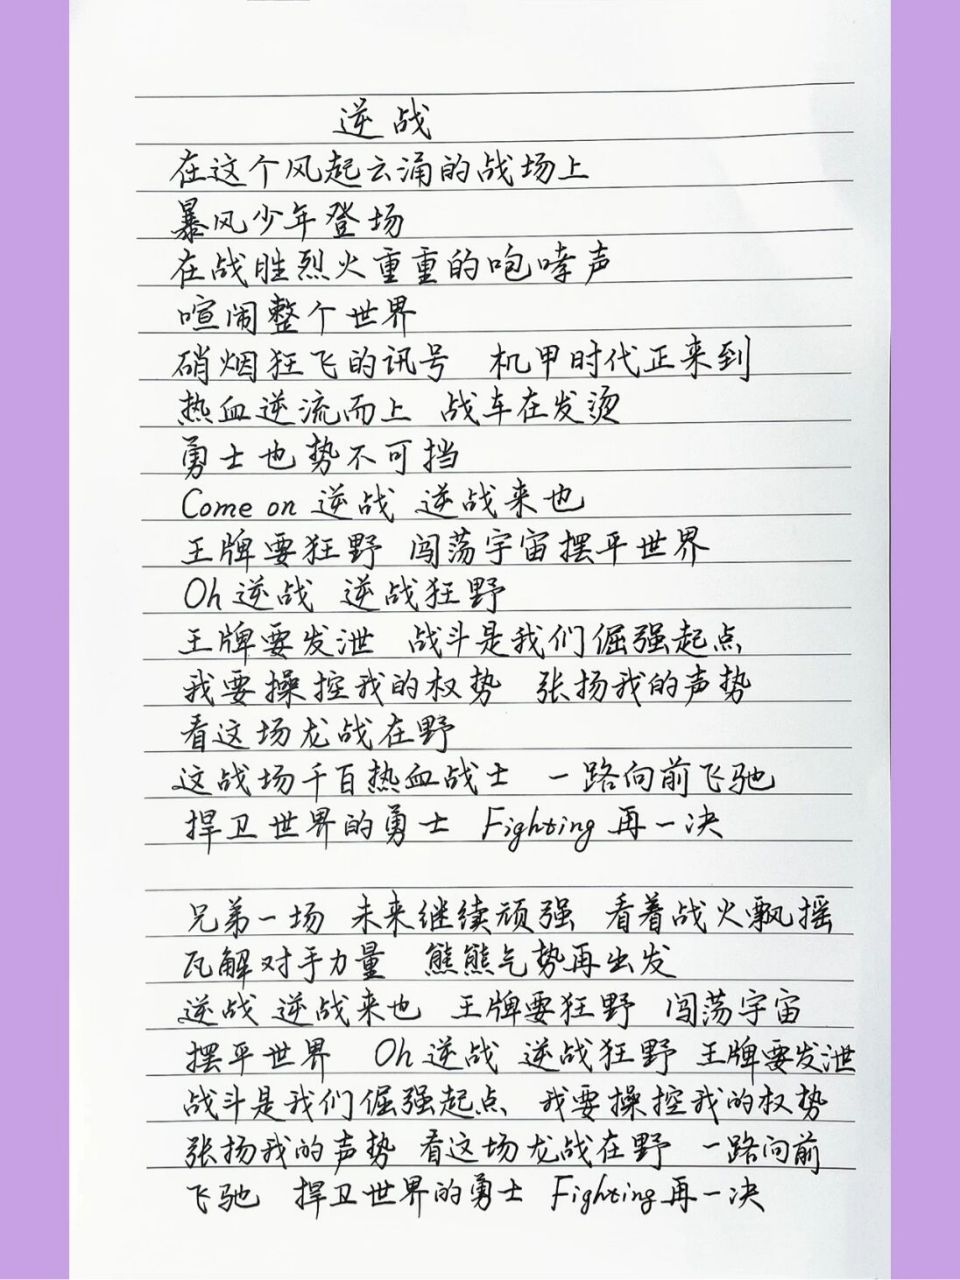 逆战
在这个风起云涌的战场上
暴风少年登场
在战胜烈火重重的咆哮声
喧闹整个世界
硝烟狂飞的讯号 机甲时代正来到
热血逆流而上 战车在发烫
勇士也势不可挡
Come on 逆战 逆战来也
王牌要狂野 闯荡宇宙摆平世界
Oh 逆战 逆战狂野
王牌要发泄 战斗是我们倔强起点
我要操控我的权势 张扬我的声势
看这场龙战在野
这战场千百热血战士 一路向前飞驰
捍卫世界的勇士 Fighting 再一决
兄弟一场 未来继续顽强 看着战火飘摇
瓦解对手力量 熊熊气势再出发
逆战 逆战来也 王牌要狂野 闯荡宇宙
摆平世界 Oh 逆战 逆战狂野 王牌要发泄
战斗是我们倔强起点 我要操控我的权势
张扬我的声势 看这场龙战在野 一路向前
飞驰 捍卫世界的勇士 Fighting 再一决